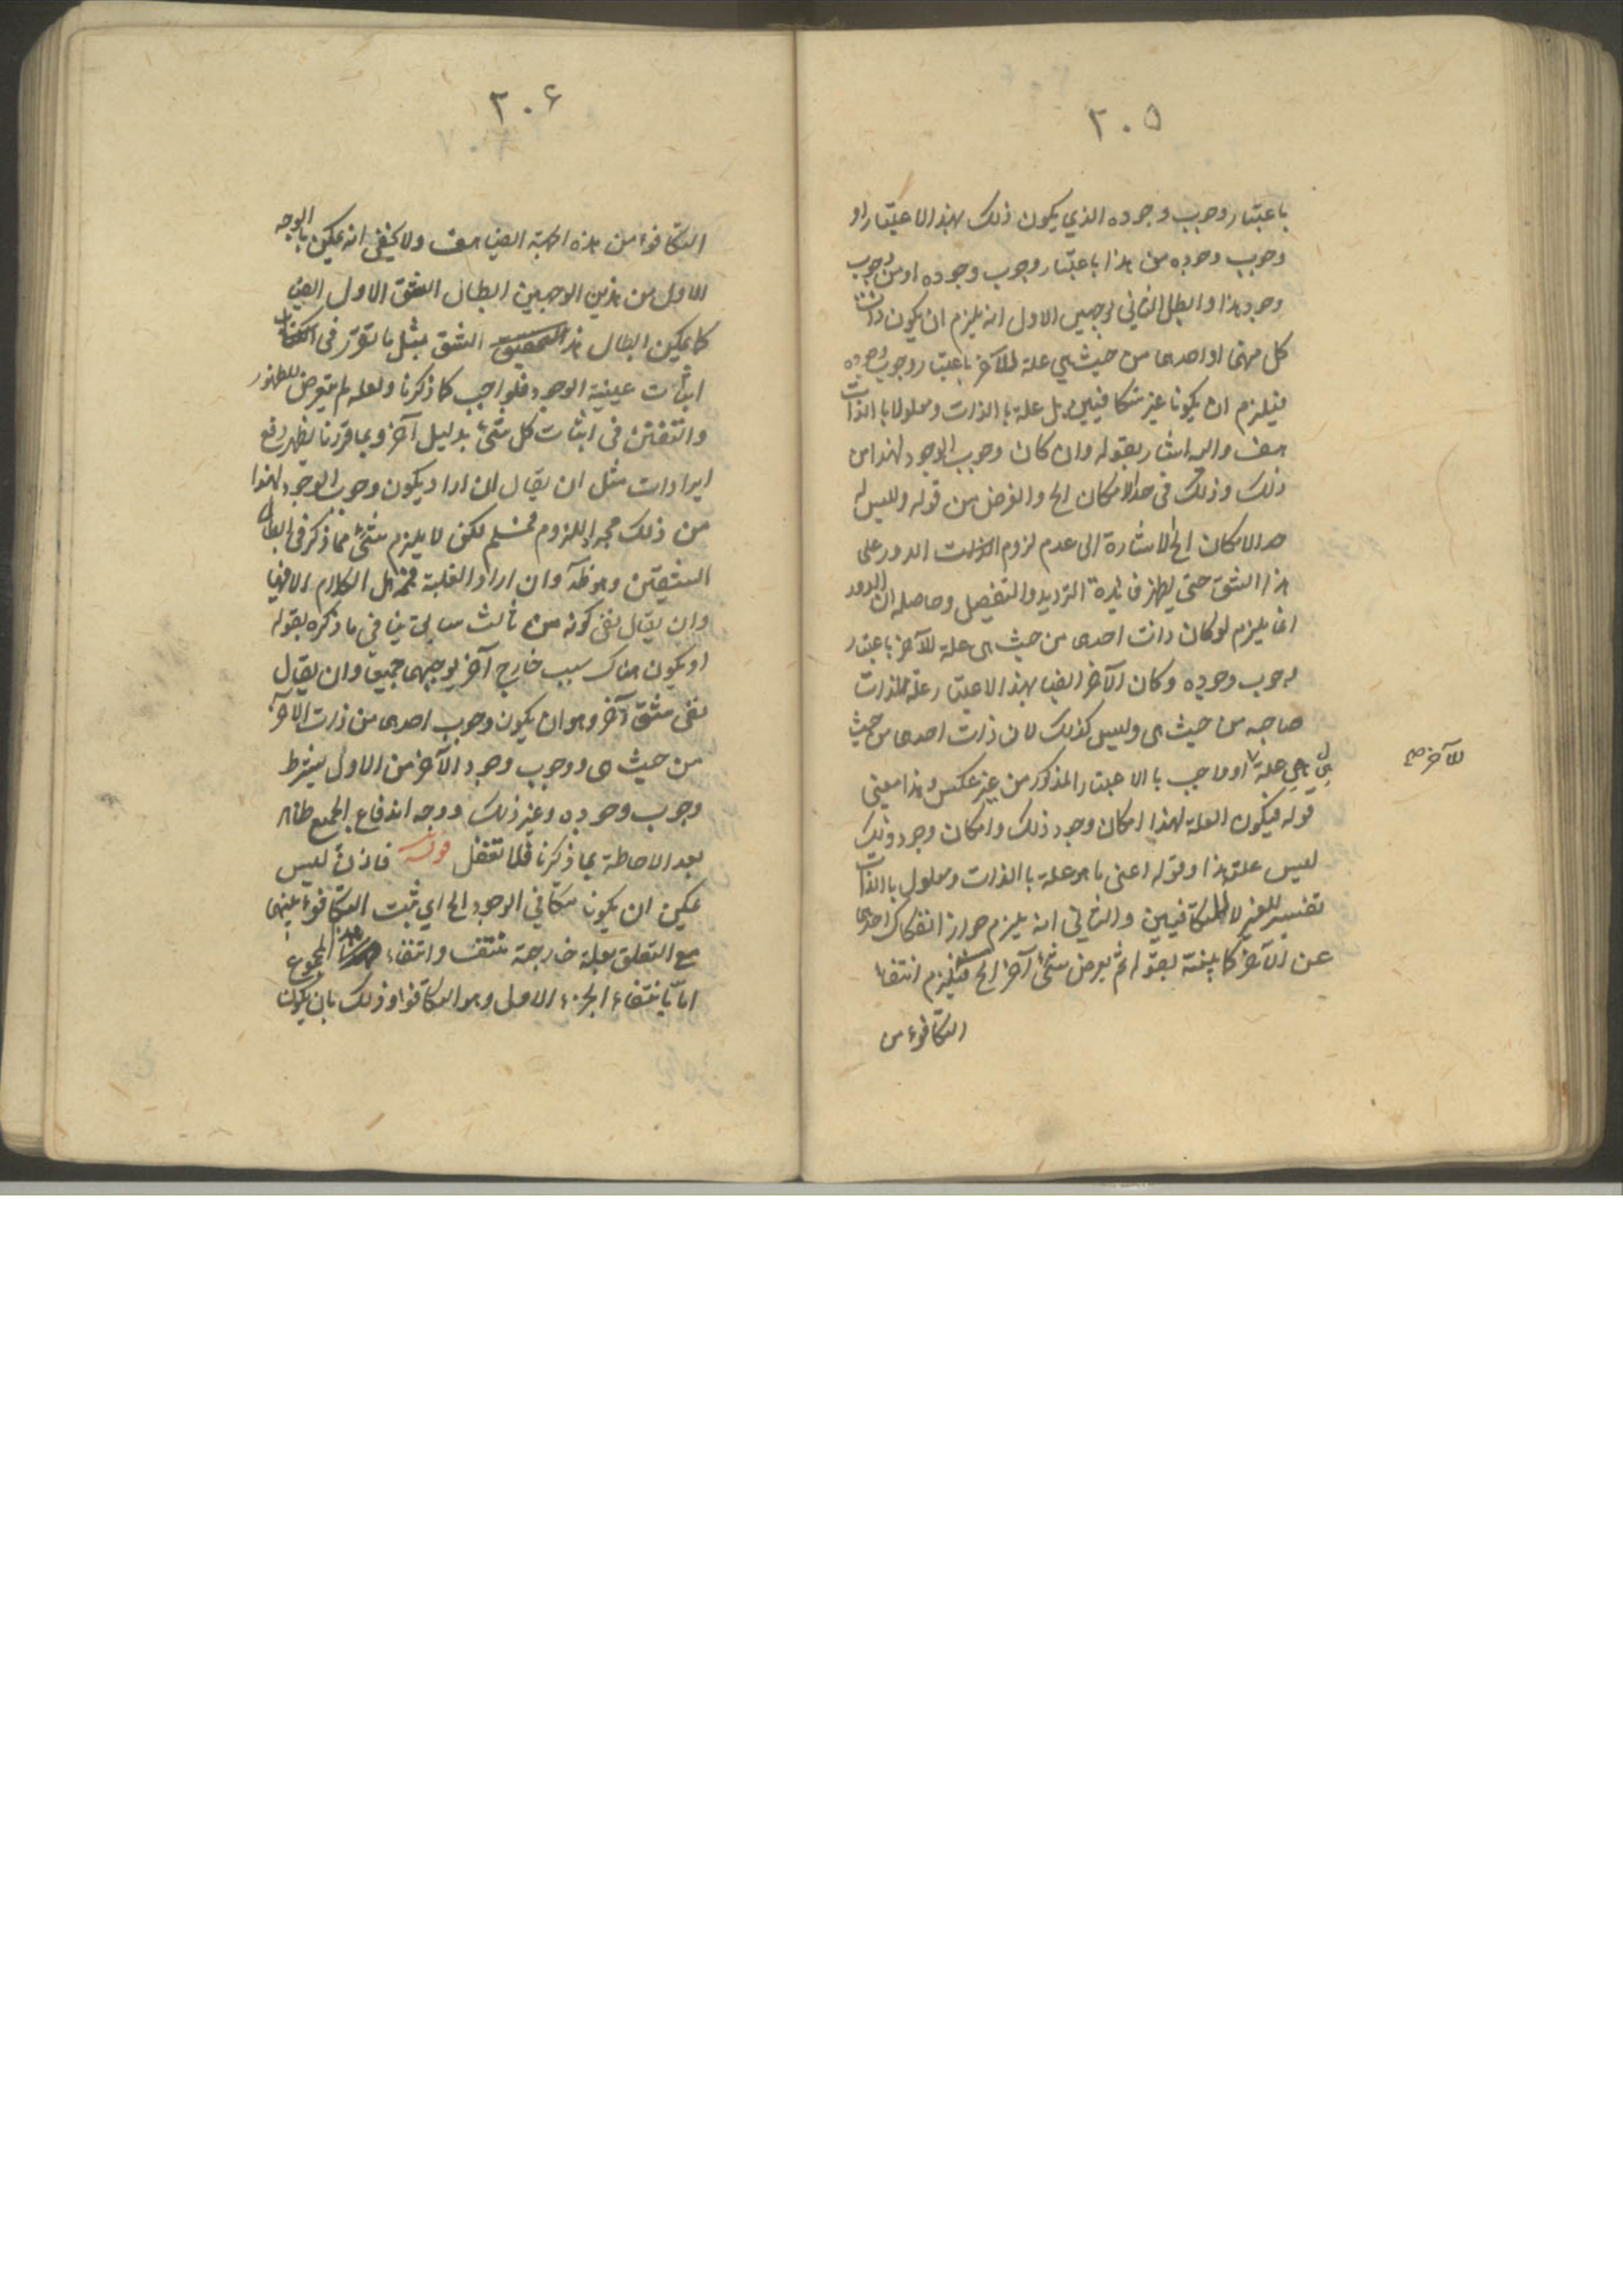 ٢٠٥
باعتبار وجوب وجوده الذي يكون ذلك بهذا الاعتبار او
وجوب وجوده من هذا باعتبار وجوب وجوده او من وجوب
وجود هذا وابطل الثاني بوجهين الاول انه يلزم ان يكون ذات
كل منهما او احدهما من حيث هي علة للآخر باعتبار وجوب وجوده
فيلزم ان يكونا غير متكافيين بل علة بالذات ومعلولا بالذات
هف واليه اشار بقوله وان كان وجوب الوجود لهذا من
ذلك وذلك في حد الامكان الخ والغرض من قوله وليس له
حد الامكان الخ الاشارة الى عدم لزوم الدور على
هذا الشق حتى يظهر فايدة الترديد والتفصيل وحاصله ان الدور
انما يلزم لو كان ذات احدهما من حيث هى علة للآخر باعتبار
وجوب وجوده وكان الآخر ايضا بهذا الاعتبار علة لذات
صاحبه من حيث هى وليس كذلك لان ذات احدهما من حيث
هي هي علة للآخر صح
او واجب بالاعتبار المذكور من غير عكس وهذا معنى
قوله فيكون العلة لهذا امكان وجود ذلك وامكان وجود ذلك
ليس علته هذا وقوله اعنى ما هو علة بالذات ومعلول بالذات
تفسير للغير لا للمتكافيين والثاني انه يلزم جواز انفكاك احدهما
عن الآخر كما بينته بقوله ثم يعرض شئ آخر الخ فيلزم انتفاء
التكافوء من
٢٠۶
التكافوء من هذه الجهة ايضا هف ولا يخفى انه يمكن بالوجه
الاول من هذين الوجهين ابطال الشق الاول ايضا
كما يمكن ابطال هذا الشق بمثل ما تقرر في
اثبات عينية الوجود للواجب كما ذكرنا ولعله لم يتعرض للظهور
والتفنن في اثبات كل شئ بدليل آخر وبما قررنا يظهر دفع
ايرادات مثل ان يقال ان اراد بكون وجوب الوجود لهذا
من ذلك مجرد اللزوم فمسلم لكن لا يلزم شئ مما ذكر في ابطال
الشقين وهو ظ وان اراد العلية فمجمل الكلام الا فيها
وان يقال نفى كونه من ثالث سابق ينافي ما ذكره بقوله
او يكون هناك سبب خارج آخر يوجبهما جميعا وان يقال
نفى شق آخر وهو ان يكون وجوب احدهما من ذات الآخر
من حيث هى ووجوب وجود الآخر من الاول بشرط
وجوب وجوده وغير ذلك ووجه اندفاع الجميع ظاهر
بعد الاحاطة بما ذكرنا فلا تغفل قوله فاذن ليس
يمكن ان يكونا متكافي الوجود الخ اي ثبت التكافوء بينهما
مع التعلق بعلة خارجة منتف وانتفاء هذا المجموع
اما بانتفاء الجزء الاول وهو التكافوء وذلك بان يكون